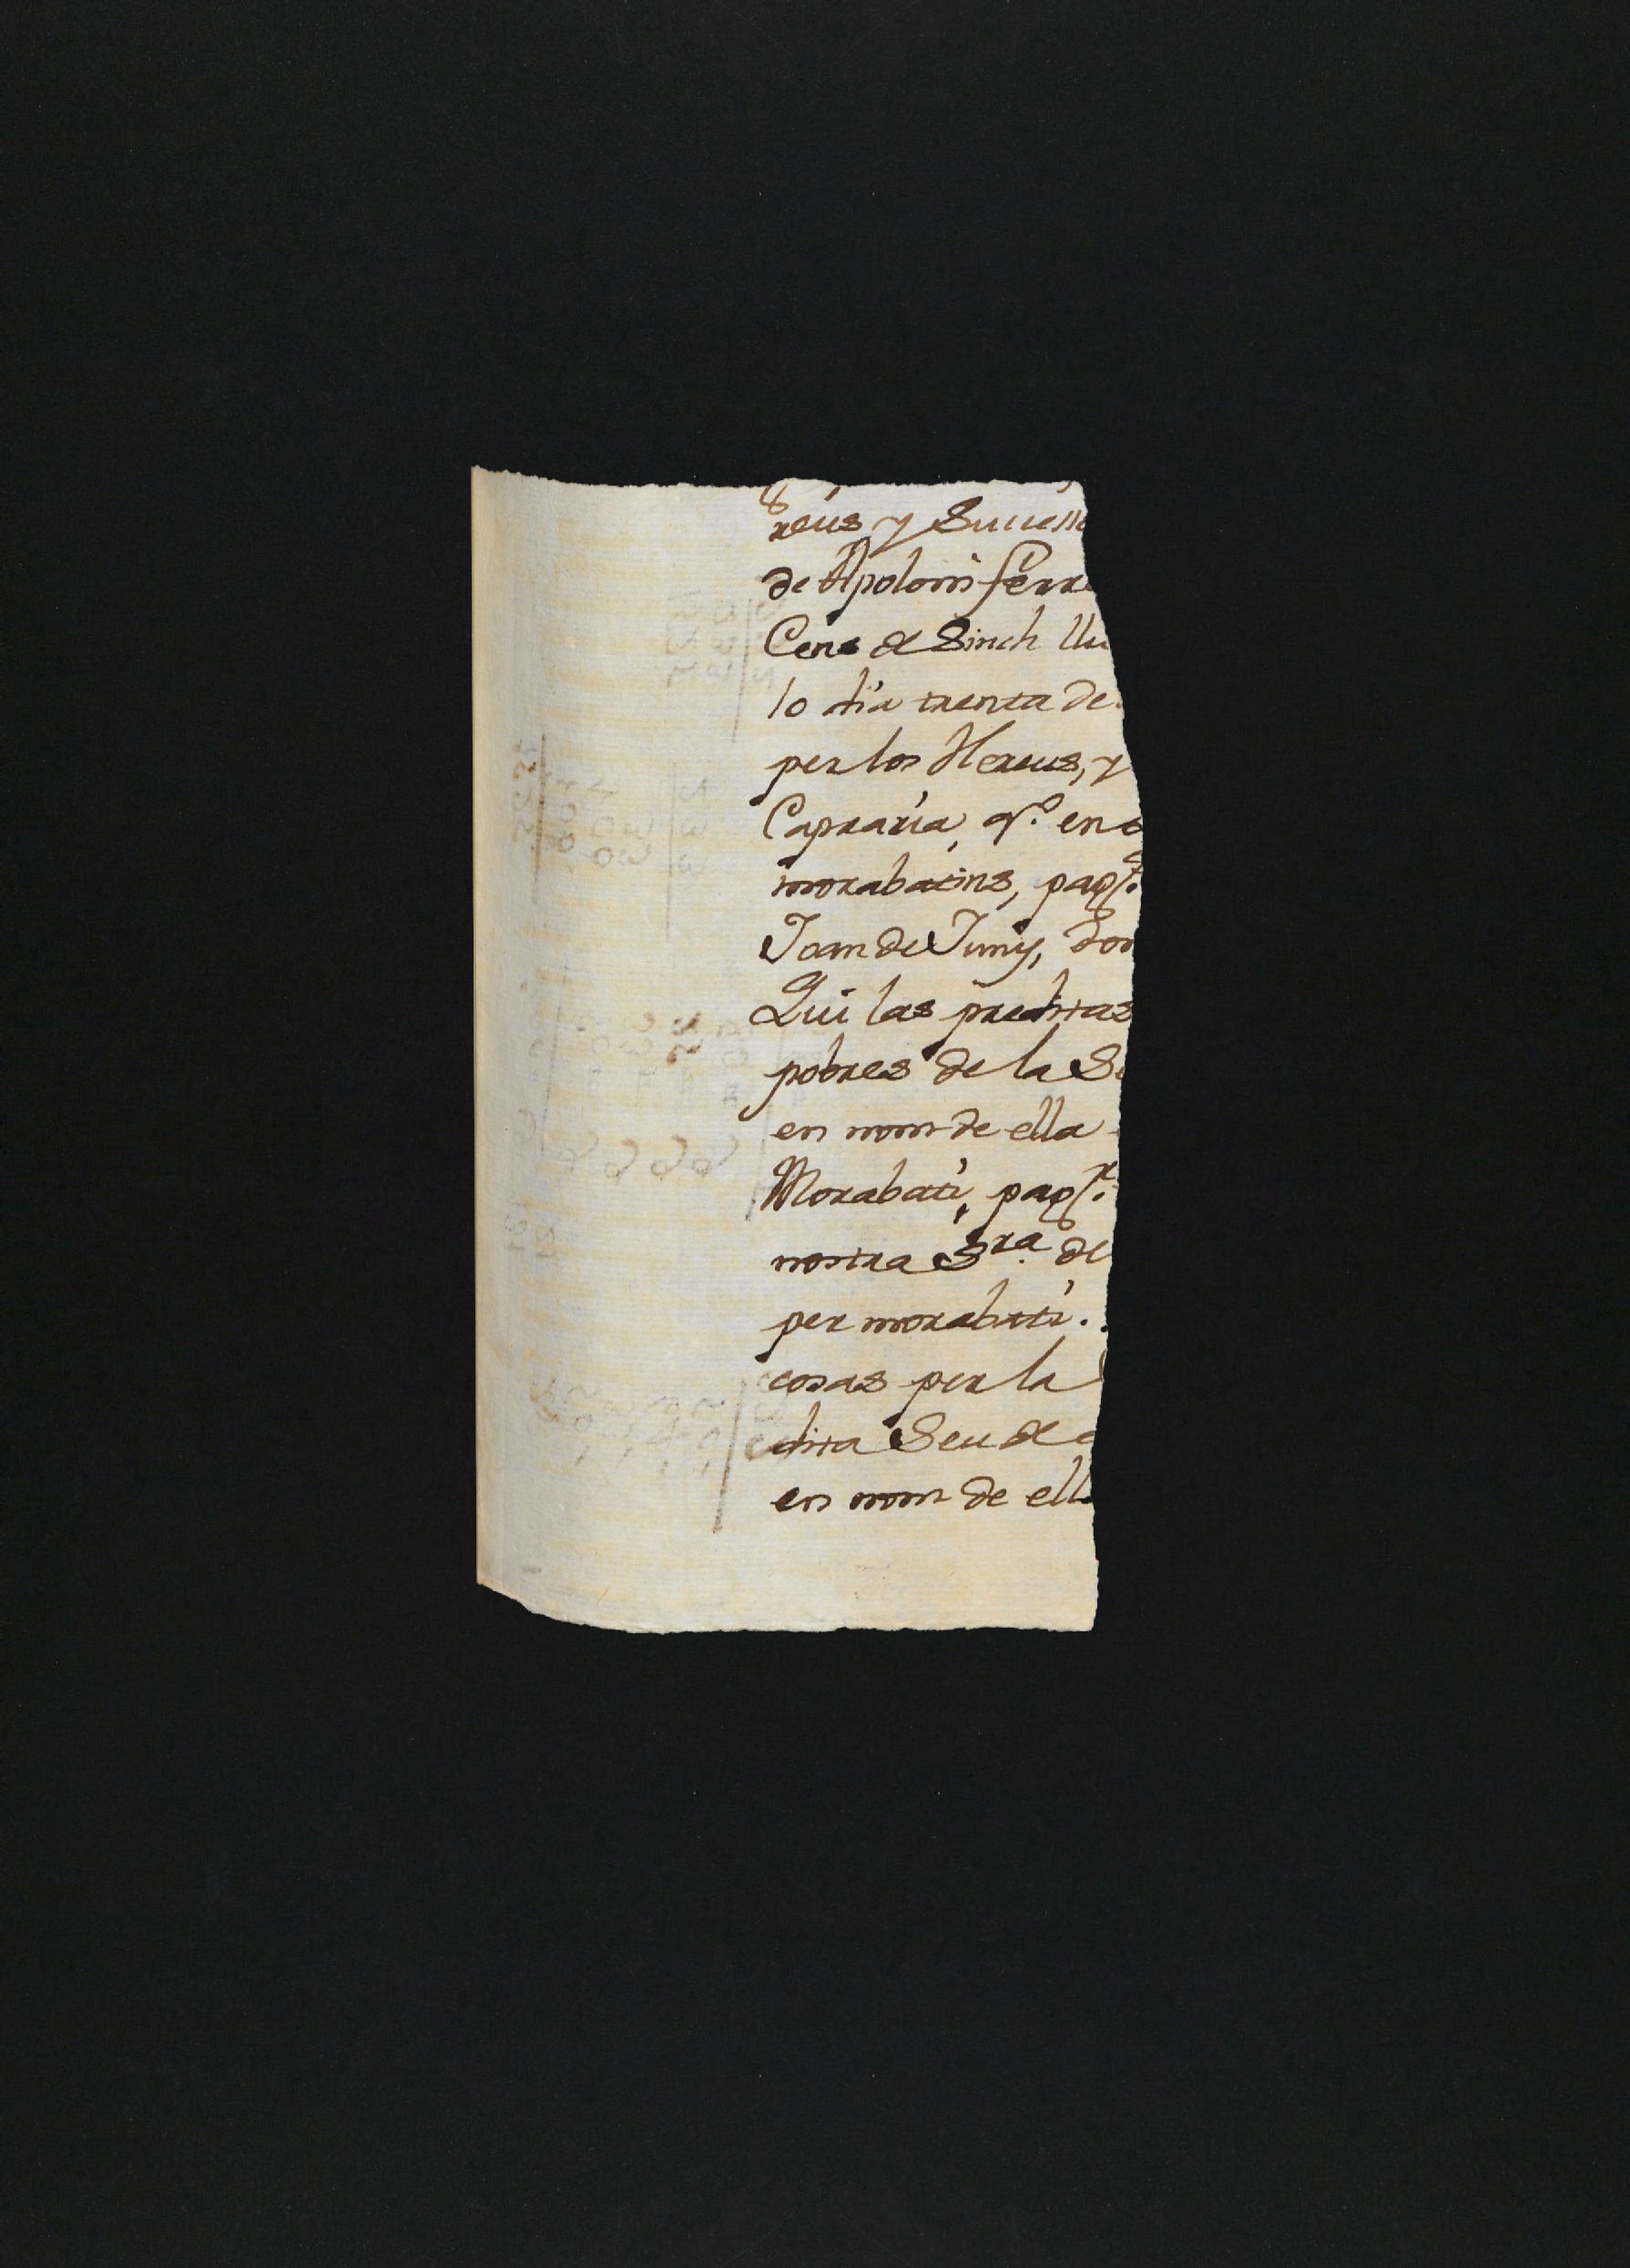 reus y Successo
de Apoloni ferre
Cens de Sinch llu
lo dia trenta de
per los Hereus, y
Capraria, q.º en
morabatins, pag.
Joan de Juny, don
Qui las preditas
pobres de la Se
en nom de ella
Morabati, pag.
nostra S.ra de
per morabati.
cosas per la
dita Seu de
en nom de ella